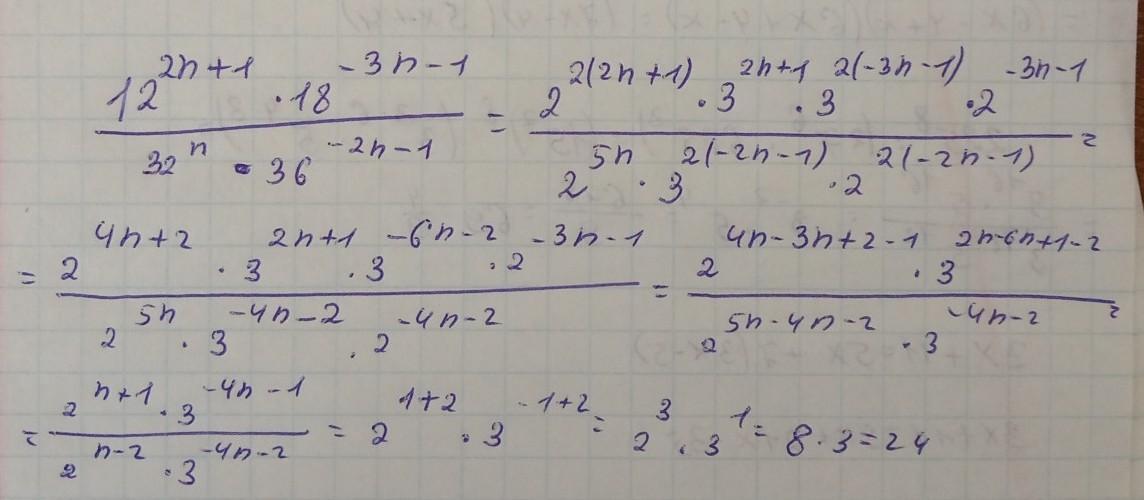 12^{2n+1} · 18^{-3n-1} / 32^{n} · 36^{-2n-1} = 2^{2(2n+1)} · 3^{2n+1} · 3^{2(-3n-1)} · 2^{-3n-1} / 2^{5n} · 3^{2(-2n-1)} · 2^{2(-2n-1)} =
= 2^{4n+2} · 3^{2n+1} · 3^{-6n-2} · 2^{-3n-1} / 2^{5n} · 3^{-4n-2} · 2^{-4n-2} = 2^{4n-3n+2-1} · 3^{2n-6n+1-2} / 2^{5n-4n-2} · 3^{-4n-2} =
= 2^{n+1} · 3^{-4n-1} / 2^{n-2} · 3^{-4n-2} = 2^{1+2} · 3^{-1+2} = 2^{3} · 3^{1} = 8 · 3 = 24